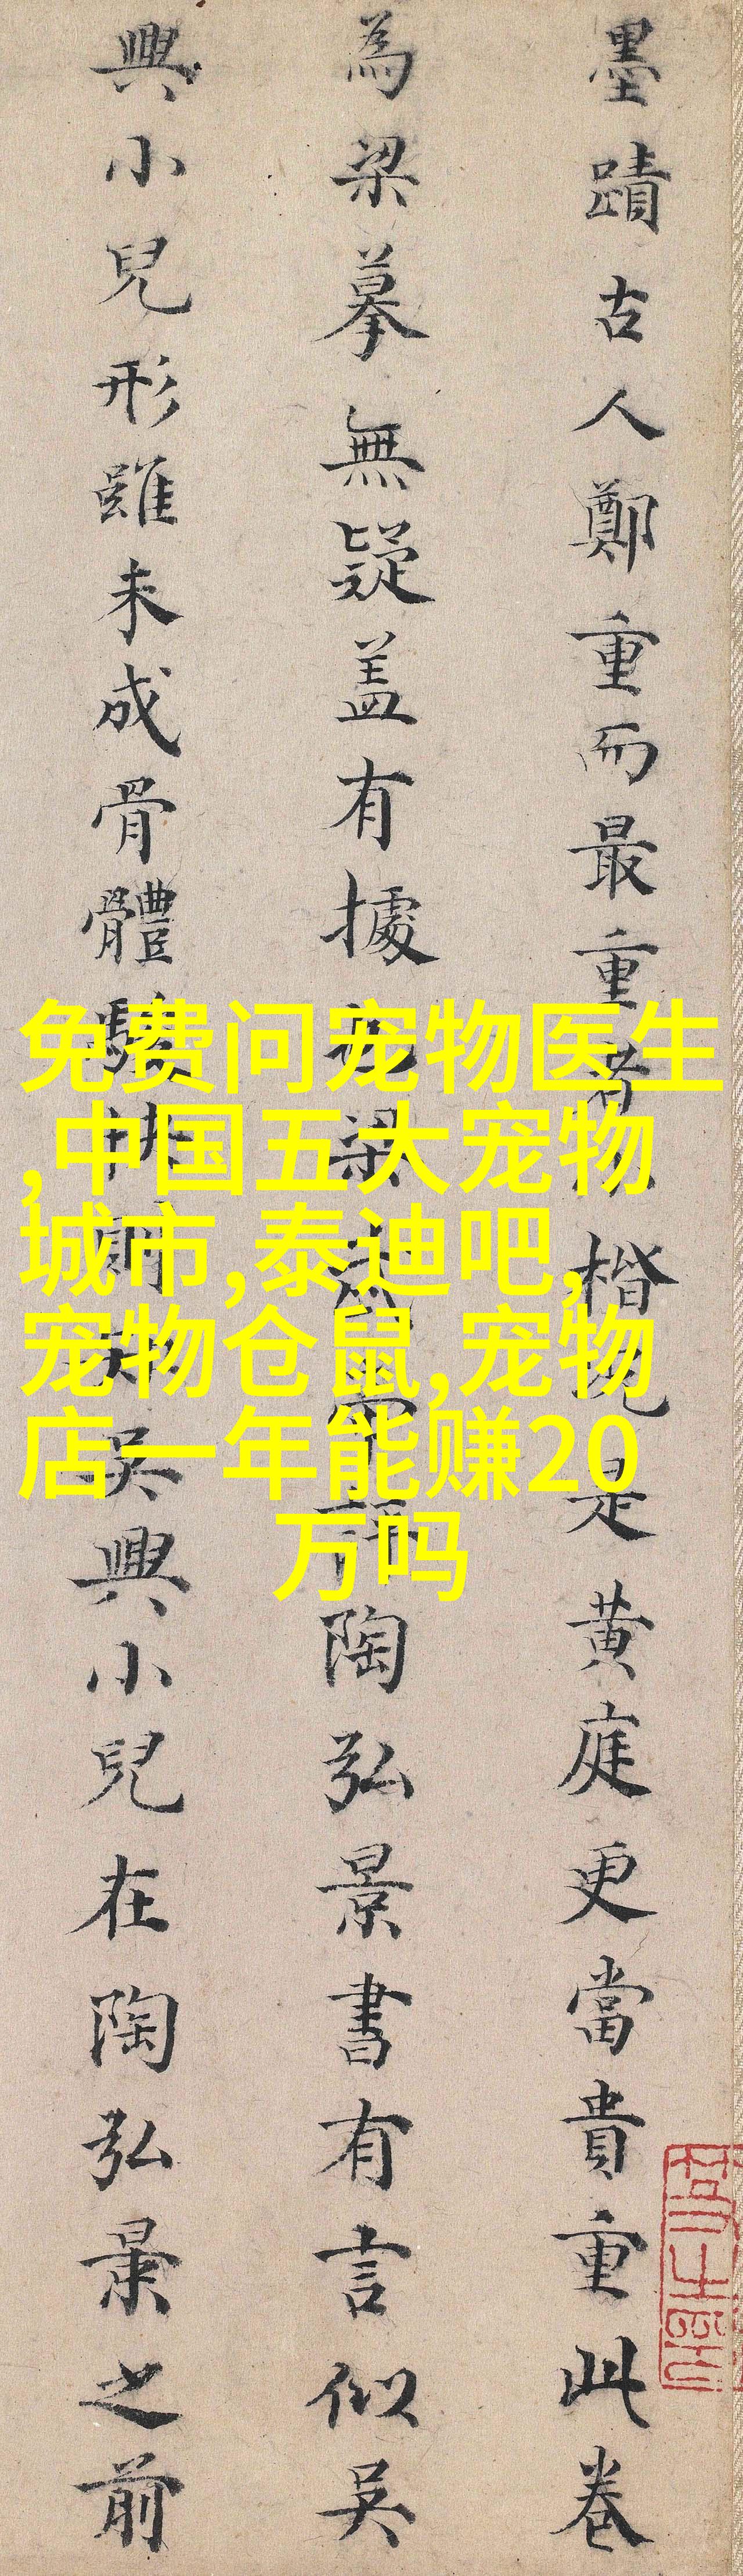 墨蹟古人鄭重而最重者楷況是黄庭更當貴重此卷
為梁摹無疑盖有據梁武帝評陶弘景書有言似吳
興小兒形雖未成骨體駿快則知吳興小兒在陶弘景之前
免费问宠物医生
,中国五大宠物
城市,泰迪吧,
宠物仓鼠,宠物
店一年能赚20
万吗